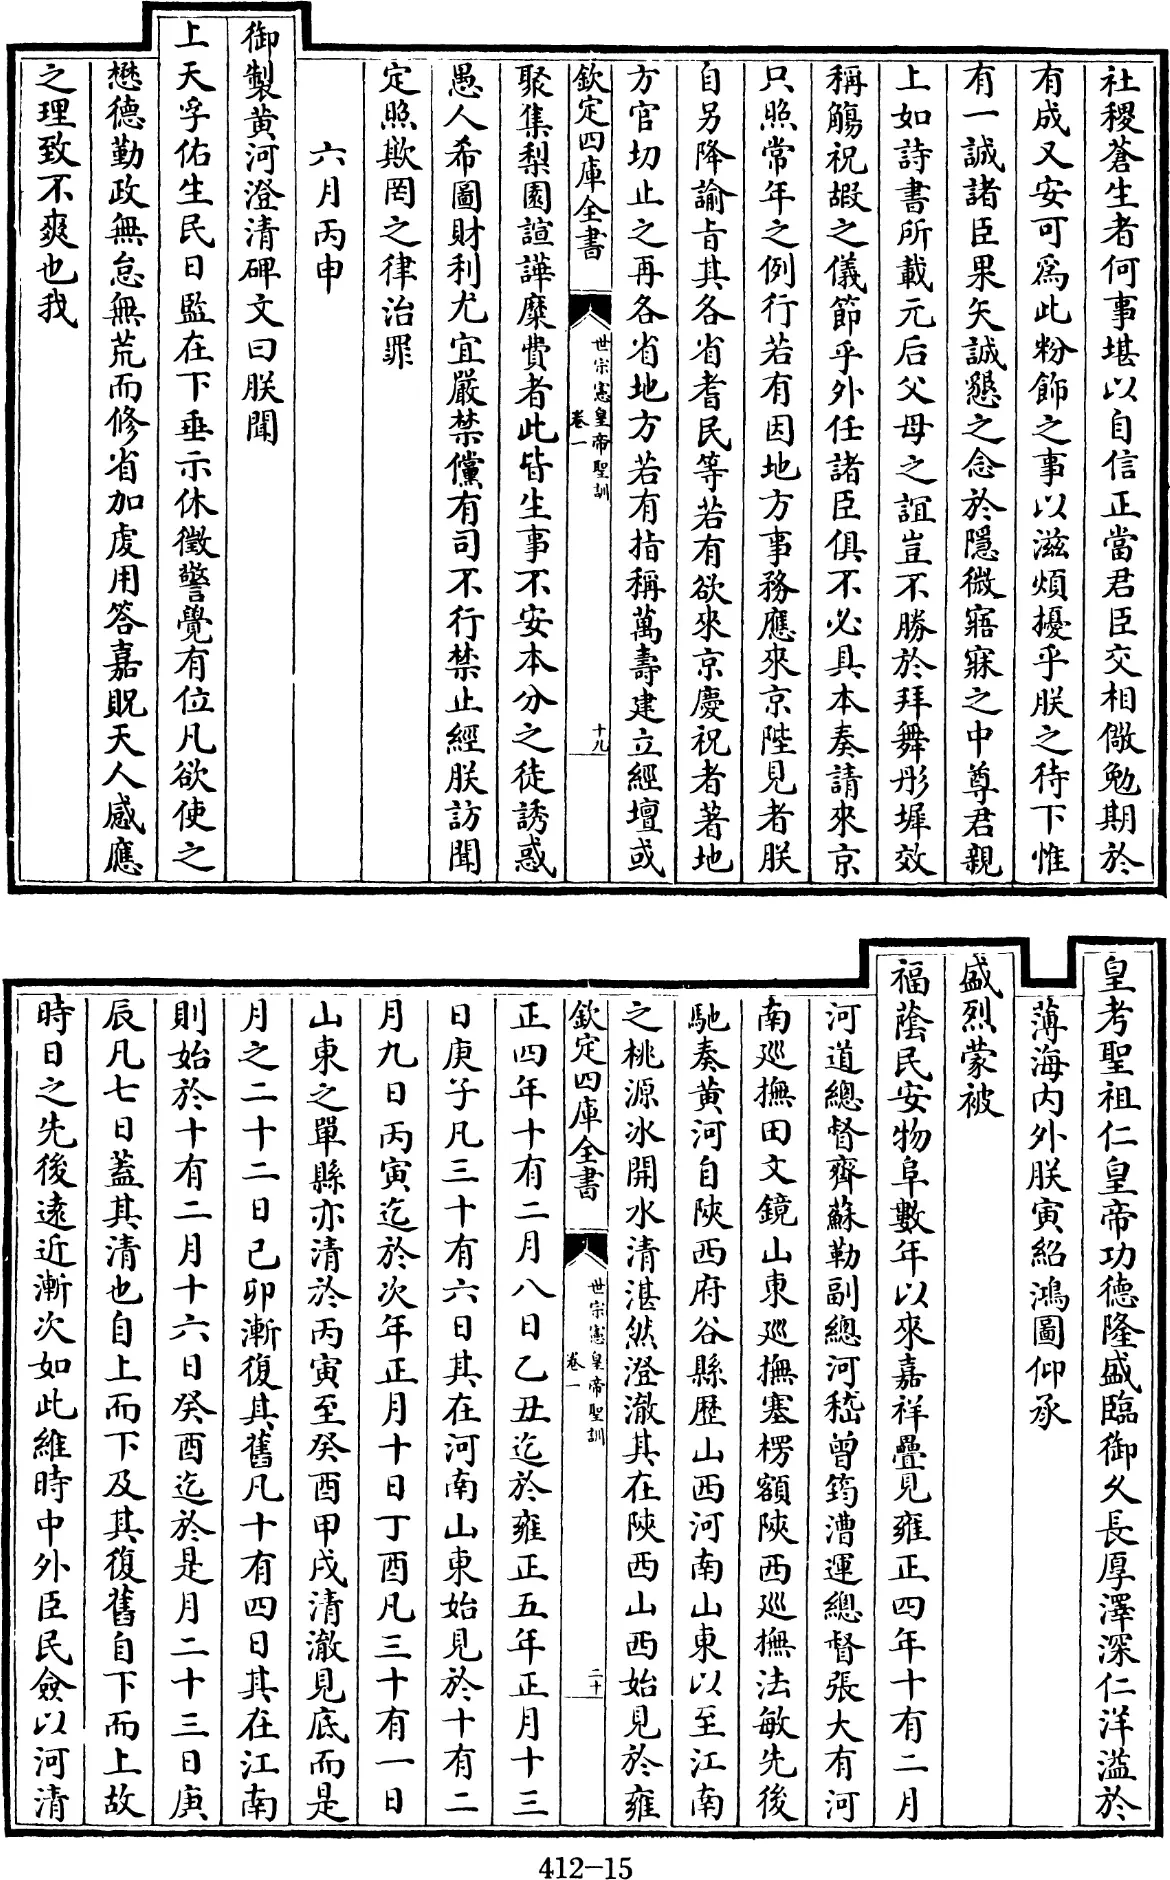 社稷蒼生者何事堪以自信正當君臣交相儆勉期於
有成又安可爲此粉飾之事以滋煩擾乎朕之待下惟
有一誠諸臣果矢誠懇之念於隱微寤寐之中尊君親
上如詩書所載元后父母之誼豈不勝於拜舞彤墀效
稱觴祝嘏之儀節乎外任諸臣俱不必具本奏請來京
只照常年之例行若有因地方事務應來京陛見者朕
自另降諭旨其各省耆民等若有欲來京慶祝者著地
方官切止之再各省地方若有指稱萬壽建立經壇或
欽定四庫全書
世宗憲皇帝聖訓
卷一
十九
聚集梨園諠譁糜費者此皆生事不安本分之徒誘惑
愚人希圖財利尤宜嚴禁儻有司不行禁止經朕訪聞
定照欺罔之律治罪
六月丙申
御製黃河澄清碑文曰朕聞
上天孚佑生民日監在下垂示休徵警覺有位凡欲使之
懋德勤政無怠無荒而修省加虔用答嘉貺天人感應
之理致不爽也我
皇考聖祖仁皇帝功德隆盛臨御久長厚澤深仁洋溢於
薄海内外朕寅紹鴻圖仰承
盛烈蒙被
福蔭民安物阜數年以來嘉祥疊見雍正四年十有二月
河道總督齊蘇勒副總河嵇曾筠漕運總督張大有河
南巡撫田文鏡山東巡撫塞楞額陝西巡撫法敏先後
馳奏黃河自陝西府谷縣歷山西河南山東以至江南
之桃源冰開水清湛然澄澈其在陝西山西始見於雍
欽定四庫全書
世宗憲皇帝聖訓
卷一
二十
正四年十有二月八日乙丑迄於雍正五年正月十三
日庚子凡三十有六日其在河南山東始見於十有二
月九日丙寅迄於次年正月十日丁酉凡三十有一日
山東之單縣亦清於丙寅至癸酉甲戌清澈見底而是
月之二十二日己卯漸復其舊凡十有四日其在江南
則始於十有二月十六日癸酉迄於是月二十三日庚
辰凡七日蓋其清也自上而下及其復舊自下而上故
時日之先後遠近漸次如此維時中外臣民僉以河清
412-15